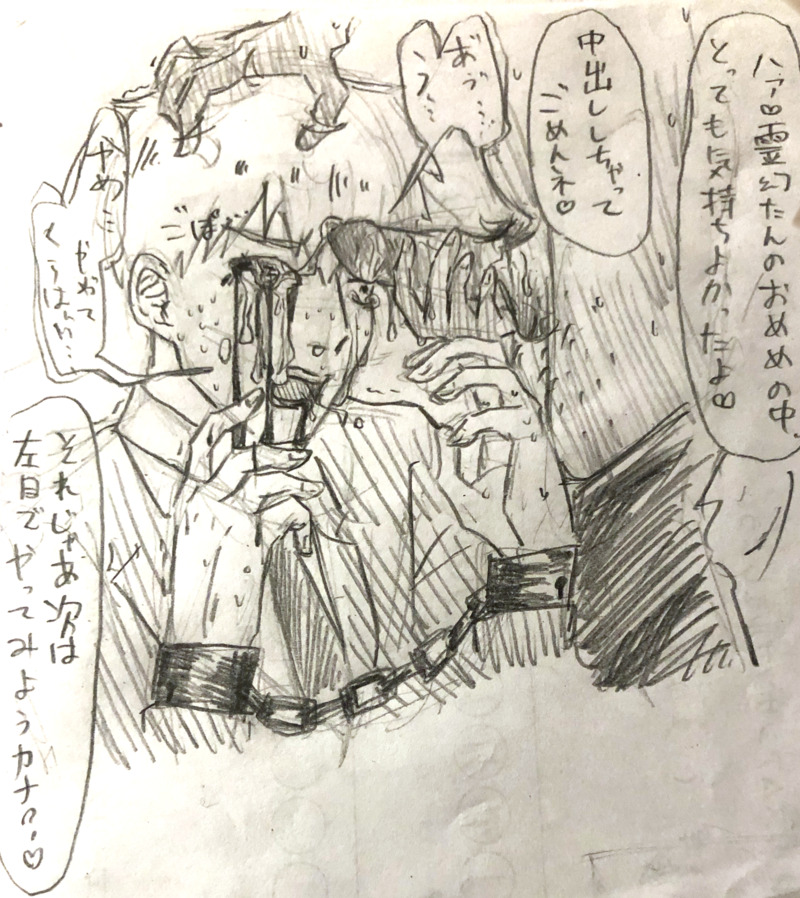 ハァー♡霊幻たんのおめめの中、
とっても気持ちよかったよ♡
中出ししちゃって
ごめんネ♡
やめ…
やめて
くらはい…
それじゃあ次は
左目でやってみようカナァー♡